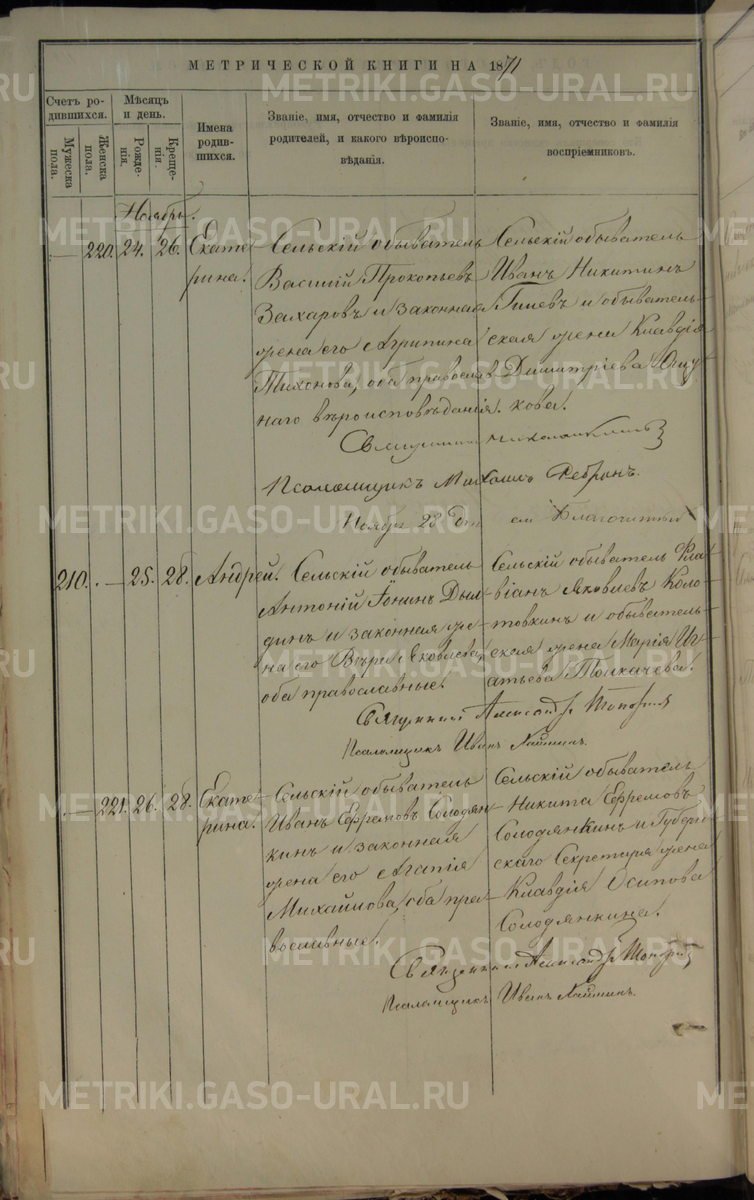 МЕТРИЧЕСКОЙ КНИГИ НА 1871
Счетъ ро-
дившихся.
Мужеска
пола.
Женска
пола.
Мѣсяцъ
и день.
Рожде-
нія.
Креще-
нія.
Имена
родив-
шихся.
Званіе, имя, отчество и фамилія
родителей, и какого вѣроиспо-
вѣданія.
Званіе, имя, отчество и фамилія
воспріемниковъ.
Ноябрь.
— 220. 24. 26.
Екате-
рина.
Сельскій обыватель
Василій Прокопьевъ
Захаровъ и законная
жена его Агрипина
Тихонова, оба православ-
наго вѣроисповѣданія.
Сельскій обыватель
Иванъ Никитинъ
Гилевъ и обыватель-
ская жена Клавдія
Димитріева
кова.
Священникъ
Псаломщикъ Михаилъ Ребринъ.
Ноября 28 Благочинный
210. — 25. 28.
Андрей.
Сельскій обыватель
Антоній Іонинъ Дыл-
динъ и законная же-
на его Вѣра Яковлева,
оба православные.
Сельскій обыватель Фла-
віанъ Яковлевъ Коло-
товкинъ и обыватель-
ская жена Марія Иг-
натьева Толкачева.
Священникъ Александръ Топорковъ
Псаломщикъ Иванъ
— 221. 26. 28.
Екате-
рина.
Сельскій обыватель
Иванъ Ефремовъ Солодян-
кинъ и законная
жена его Агапія
Михайлова, оба пра-
вославные.
Сельскій обыватель
Никита Ефремовъ
Солодянкинъ и Губерн-
скаго Секретаря жена
Клавдія Осипова
Солодянкина.
Священникъ Александръ Топорковъ
Псаломщикъ Иванъ
METRIKI.GASO-URAL.RU